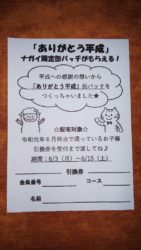 「ありがとう平成」
ナガイ限定缶バッチがもらえる!
平成への感謝の想いから
「ありがとう平成」缶バッチを
つくっちゃいました★
☆配布対象☆
令和元年6月時点で通っているお子様
引換券を受付まで渡してね♪
期間:6/3(月)~6/15(土)
引換券
会員番号 コース
名前